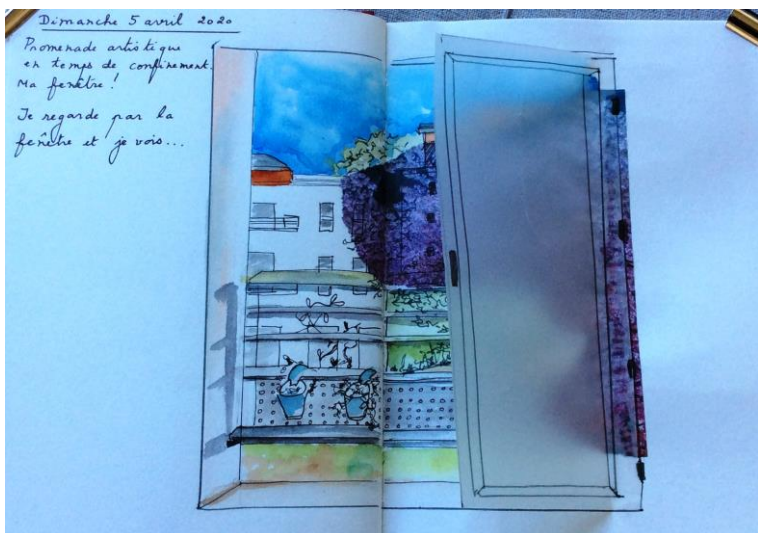 Dimanche 5 avril 2020
Promenade artistique
en temps de confinement.
Ma fenêtre !
Je regarde par la
fenêtre et je vois...